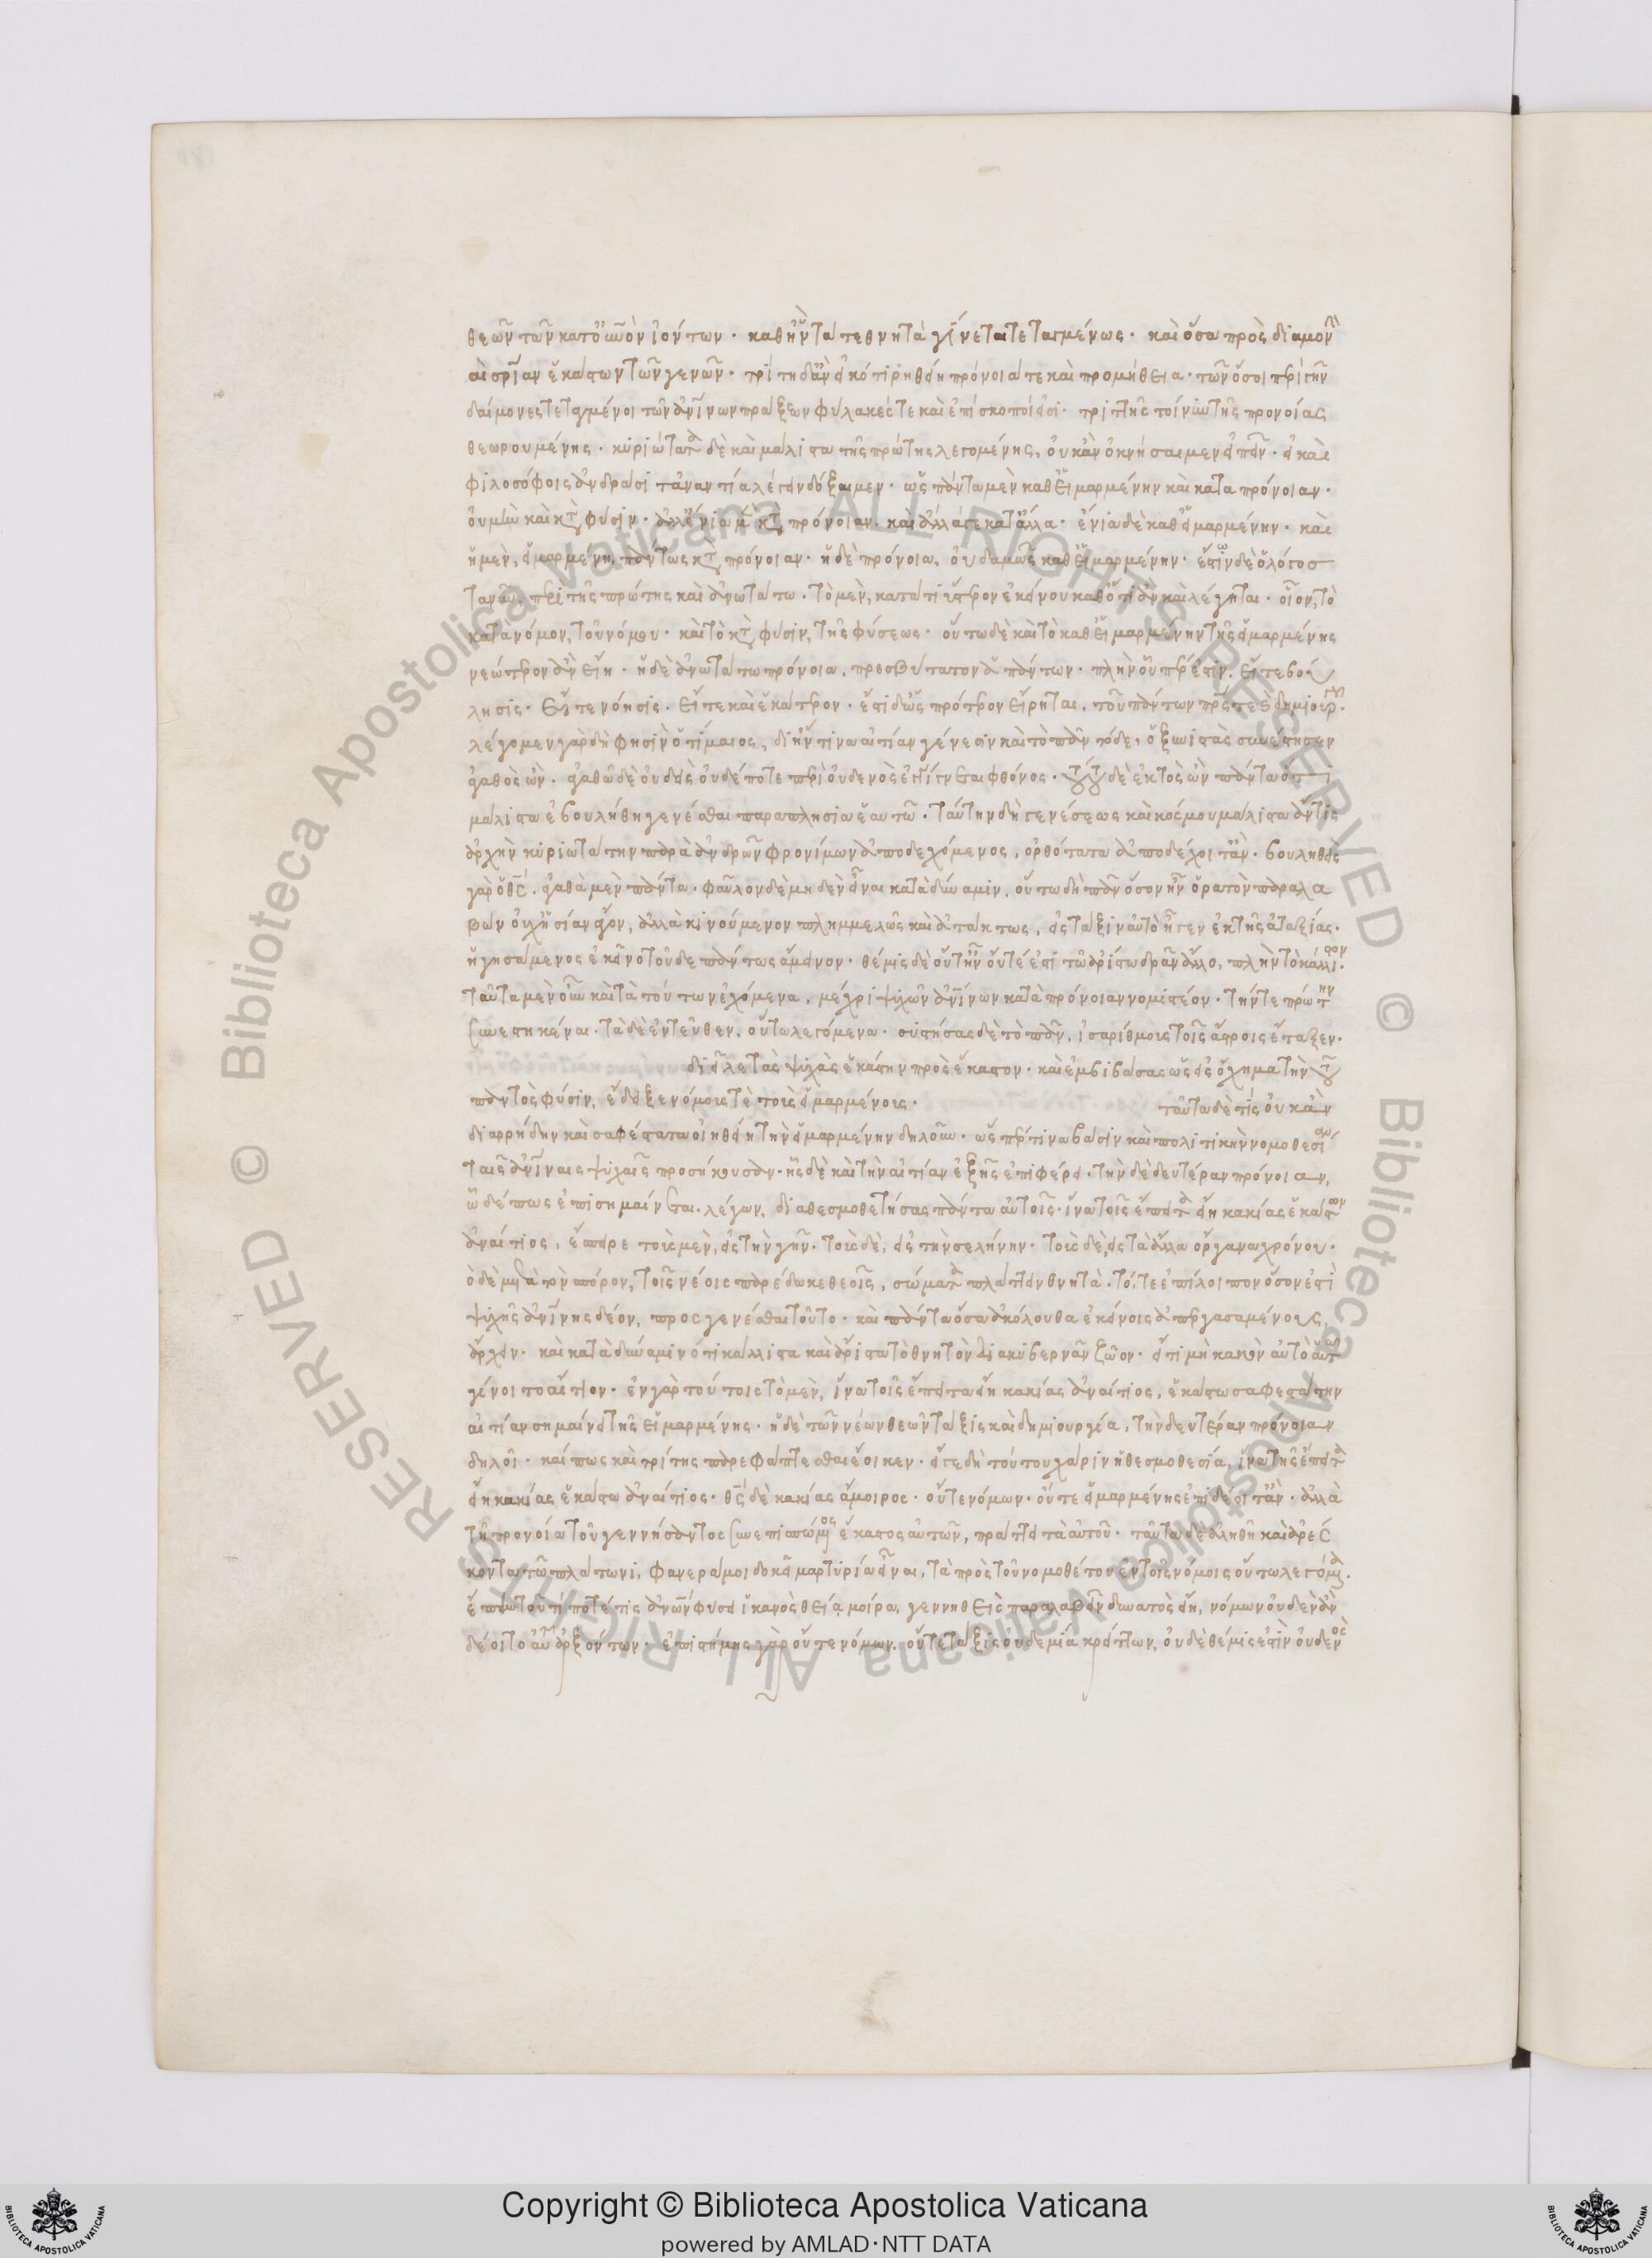 θεῶν τῶν κατ' οὐρανὸν ἰόντων· καθ' ἣν τά τε θνητὰ γίνεται τεταγμένως· καὶ ὅσα πρὸς διαμονὴν
καὶ σωτηρίαν ἑκάστων τῶν γενῶν· τρίτη δ' ἂν εἰκότι ῥηθείη πρόνοιά τε καὶ προμήθεια· τῶν ὅσοι περὶ γῆν
δαίμονες τεταγμένοι τῶν ἀνθρωπίνων πράξεων φύλακές τε καὶ ἐπίσκοποί εἰσι· τριττῆς τοίνυν τῆς προνοίας
θεωρουμένης· κυριώτατα δὲ καὶ μάλιστα τῆς πρώτης λεγομένης, οὐκ ἂν ὀκνήσαιμεν εἰπεῖν· εἰ καὶ
φιλοσόφοις ἀνδράσι τἀναντία λέγειν δόξαιμεν· ὡς πάντα μὲν καθ' εἱμαρμένην καὶ κατὰ πρόνοιαν·
οὐ μὴν καὶ κατὰ φύσιν· ἀλλ' ἔνια μὲν κατὰ πρόνοιαν· καὶ ἄλλά γε κατ' ἄλλα· ἔνια δὲ καθ' εἱμαρμένην· καὶ
ἡ μὲν, εἱμαρμένη, πάντως κατὰ πρόνοιαν· ἡ δὲ πρόνοια, οὐδαμῶς καθ' εἱμαρμένην· ἔστω δὲ ὁ λόγος
τανῦν, περὶ τῆς πρώτης καὶ ἀνωτάτω· τὸ μὲν, κατά τι ὕστερον ἐκείνου καθ' ὅ τι ἂν καὶ λέγηται· οἷον, τὸ
κατὰ νόμον, τοῦ νόμου· καὶ τὸ κατὰ φύσιν, τῆς φύσεως· οὕτω δὲ καὶ τὸ καθ' εἱμαρμένην τῆς εἱμαρμένης
νεώτερον ἂν εἴη· ἡ δὲ ἀνωτάτω πρόνοια, πρεσβύτατον ἁπάντων· πλὴν οὗπέρ ἐστιν, εἴτε βού
λησις· εἴτε νόησις· εἴτε καὶ ἑκάτερον· ἔστι δ' ὡς πρότερον εἴρηται, τοῦ πάντων πατρός τε καὶ δημιουργοῦ.
λέγομεν γὰρ δὴ φησὶν ὁ τίμαιος, δι' ἥντινα αἰτίαν γένεσιν καὶ τὸ πᾶν τόδε, ὁ ξυνιστὰς συνέστησεν
ἀγαθὸς ἦν· ἀγαθῷ δὲ οὐδεὶς οὐδέποτε περὶ οὐδενὸς ἐγγίνεται φθόνος· τούτου δὲ ἐκτὸς ὢν πάντα ὅτι
μάλιστα ἐβουλήθη γενέσθαι παραπλήσια ἑαυτῷ· ταύτην δὴ γενέσεως καὶ κόσμου μάλιστα ἄν τις
ἀρχὴν κυριωτάτην παρὰ ἀνδρῶν φρονίμων ἀποδεχόμενος, ὀρθότατα ἀποδέχοιτ' ἄν· βουληθεὶς
γὰρ ὁ θεός, ἀγαθὰ μὲν πάντα· φαῦλον δὲ μηδὲν εἶναι κατὰ δύναμιν, οὕτω δὴ πᾶν ὅσον ἦν ὁρατὸν παραλα
βὼν οὐχ ἡσυχίαν ἄγον, ἀλλὰ κινούμενον πλημμελῶς καὶ ἀτάκτως, εἰς τάξιν αὐτὸ ἤγεν ἐκ τῆς ἀταξίας·
ἡγησάμενος ἐκεῖνο τοῦδε πάντως ἄμεινον· θέμις δὲ οὔτ' ἦν οὔτέ ἐστι τῷ ἀρίστῳ δρᾶν ἄλλο, πλὴν τὸ κάλλιστον.
ταῦτα μὲν οὖν καὶ τὰ τούτων ἐχόμενα, μέχρι ψυχῶν ἀνθρωπίνων κατὰ πρόνοιαν νομιστέον· τήν τε πρώτην
συνεστηκέναι· τὰ δὲ ἐντεῦθεν, οὕτω λεγόμενα· συστήσας δὲ τὸ πᾶν, ἰσαρίθμους τοῖς ἄστροις ἔταξεν.
διεῖλέ τε τὰς ψυχὰς ἑκάστην πρὸς ἕκαστον· καὶ ἐμβιβάσας ὡς εἰς ὄχημα τὴν τοῦ
παντὸς φύσιν, ἔδειξε νόμους τὲ τοὺς εἱμαρμένους· ταῦτα δὲ τίς οὐκ ἂν
διαρρήδην καὶ σαφέστατα οἰηθείη τὴν εἱμαρμένην δηλοῦν· ὥσπερ τινα βάσιν καὶ πολιτικὴν νομοθεσίαν
ταῖς ἀνθρωπίναις ψυχαῖς προσήκουσαν· ἧς δὲ καὶ τὴν αἰτίαν ἑξῆς ἐπιφέρει· τὴν δὲ δευτέραν πρόνοιαν,
ὧδέ πως ἐπισημαίνεται λέγων, διαθεσμοθετήσας πάντα αὐτοῖς· ἵνα τοῖς ἔπειτα εἴη κακίας ἑκάστων
ἀναίτιος, ἔσπειρε τοὺς μὲν, εἰς τὴν γῆν· τοὺς δὲ, εἰς τὴν σελήνην· τοὺς δὲ, εἰς τὰ ἄλλα ὄργανα χρόνου·
ὁ δὲ μετὰ τὸν σπόρον, τοῖς νέοις παρέδωκε θεοῖς, σώματα πλάττειν θνητὰ· τό, τε ἐπίλοιπον ὅσον ἐστὶ
ψυχῆς ἀνθρωπίνης δέον, προσγενέσθαι τοῦτο· καὶ πάντα ὅσα ἀκόλουθα ἐκείνοις ἀπεργασαμένους,
ἄρχειν· καὶ κατὰ δύναμιν ὅτι κάλλιστα καὶ ἄριστα τὸ θνητὸν διακυβερνᾶν ζῶον· ὅτι μὴ κακῶν αὐτὸ αὑτῷ
γένοιτο αἴτιον· ἐν γὰρ τούτοις τὸ μὲν, ἵνα τοῖς ἔπειτα εἴη κακίας ἀναίτιος, ἑκάστῳ σαφεστάτην
αἰτίαν σημαίνει τῆς εἱμαρμένης· ἡ δὲ τῶν νέων θεῶν τάξις καὶ δημιουργία, τὴν δευτέραν πρόνοιαν
δηλοῖ· καί πως καὶ τρίτης παρεφάπτεσθαι ἔοικεν· εἴγε δὴ τούτου χάριν ἡ θεσμοθεσία, ἵνα τῆς ἔπειτα
εἴη κακίας ἑκάστῳ ἀναίτιος· θεὸς δὲ κακίας ἄμοιρος· οὔτε νόμων· οὔτε εἱμαρμένης ἐπιδέοιτ' ἄν· ἀλλὰ
τῇ προνοίᾳ τοῦ γεννήσαντος συνεπισπώμενος ἕκαστος αὐτῶν, πράττει τὰ αὐτοῦ· ταῦτα δὲ ἀληθῆ καὶ ἀρέσ
κοντα τῷ πλάτωνι, φανερά μοι δοκεῖ μαρτυρία εἶναι, τὰ πρὸς τοῦ νομοθέτου ἐν τοῖς νόμοις οὕτω λεγόμενα.
ἐπεὶ ταῦτ' εἴ ποτέ τις ἀνθρώπων φύσει ἱκανὸς θείᾳ μοίρᾳ γεννηθεὶς παραλαβεῖν δυνατὸς εἴη, νόμων οὐδὲν ἂν
δέοιτο αὐτοῦ ἀρξόντων· ἐπιστήμης γὰρ οὔτε νόμων, οὔτε τάξις οὐδεμία κρείττων, οὐδὲ θέμις ἐστὶν οὐδενὸς
© Biblioteca Apostolica Vaticana ALL RIGHTS RESERVED © Biblioteca Apostolica Vaticana ALL RIGHTS RESERVED
Copyright © Biblioteca Apostolica Vaticana
powered by AMLAD·NTT DATA
BIBLIOTECA APOSTOLICA VATICANA
BIBLIOTECA APOSTOLICA VATICANA